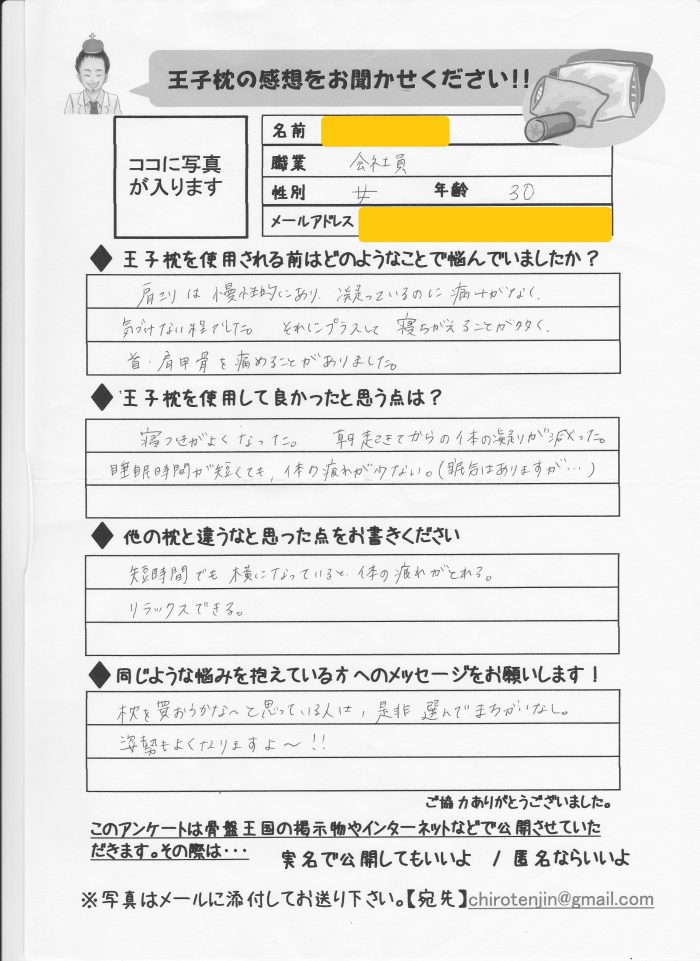 王子枕の感想をお聞かせください!!
ココに写真
が入ります
名前
職業 会社員
性別 女 年齢 30
メールアドレス
◆ 王子枕を使用される前はどのようなことで悩んでいましたか？
肩こりは慢性的にあり、凝っているのに痛みがなく、
気づけない程でした。 それにプラスして 寝ちがえることが多く、
首・肩甲骨を痛めることがありました。
◆ 王子枕を使用して良かったと思う点は？
寝つきがよくなった。 朝起きてからの体の凝りが減った。
睡眠時間が短くても、体の疲れが少ない。(眠気はありますが…)
◆ 他の枕と違うなと思った点をお書きください
短時間でも横になっていると、体の疲れがとれる。
リラックスできる。
◆ 同じような悩みを抱えている方へのメッセージをお願いします！
枕を買おうかな〜と思っている人は、是非 選んでまちがいなし。
姿勢もよくなりますよ〜!!
ご協力ありがとうございました。
このアンケートは骨盤王国の掲示物やインターネットなどで公開させていた
だきます。その際は・・・ 実名で公開してもいいよ / 匿名ならいいよ
※写真はメールに添付してお送り下さい。【宛先】chirotenjin@gmail.com